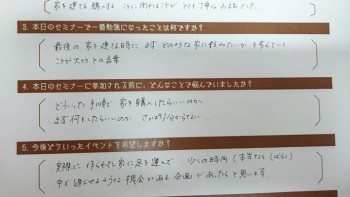 3. 本日のセミナーで一番勉強になったことは何ですか？
最後の家を建てる時に まずどのような家に住みたいか を考えている
ことが大切 との言葉
4. 本日のセミナーに参加される前に、どんなことで悩んでいましたか？
どういった手順で 家を購入したらいいのか
まず何をしたらいいのか 分からない
5. 今後どういったイベントを希望しますか？
実際に作られた家に足を運んで 少しの時間（本当なら しばらく）
中で過ごせるような機会がある企画があったらと思います